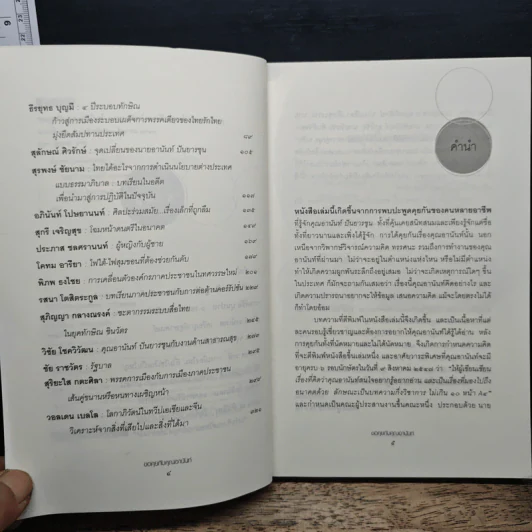 ธีรยุทธ บุญมี : ๔ ปีระบอบทักษิณ
ก้าวสู่การเมืองระบอบเผด็จการพรรคเดียวของไทยรักไทย
มุ่งยึดสัมปทานประเทศ ๘๗
สุลักษณ์ ศิวรักษ์ : จุดเปลี่ยนของนายอานันท์ ปันยารชุน ๑๐๕
สุรพงษ์ ชัยนาม : ไทยได้อะไรจากการดำเนินนโยบายต่างประเทศ
แบบธรรมาภิบาล : บทเรียนในอดีต
เพื่อนำมาสู่การปฏิบัติในปัจจุบัน
อภินันท์ โปษยานนท์ : ศิลปะร่วมสมัย...เรื่องเล็กที่ถูกลืม
สุกรี เจริญสุข : โฉมหน้าดนตรีไทย
ประภาส ชลศรานนท์ : ผู้หญิงกับผู้ชาย
โคทม อารียา : ไฟใต้-ไฟสุมขอนที่ต้องช่วยกันดับ
พิภพ ธงไชย : การเคลื่อนตัวองค์กรภาคประชาชนในบททศวรรษใหม่
รสนา โตสิตระกูล : บทเรียนภาคประชาชนกับการต่อต้านคอร์รัปชั่น
สุภิญญา กลางณรงค์ : ชะตากรรมระบบสื่อไทย
ในยุคทักษิณ ชินวัตร
วิชัย โชควิวัฒน : คุณอานันท์ ปันยารชุนกับงานด้านสาธารณสุข
ชัย ราชวัตร : รัฐบาล
สุริยะใส กตะศิลา : พรรคการเมืองกับการเมืองภาคประชาชน
เส้นคู่ขนานหรือหนทางเผชิญหน้า
วอลเดน เบลโล : โลกาภิวัตน์ในทวีปเอเชียและจีน
วิเคราะห์จากสิ่งที่เสียไปและสิ่งที่ได้มา
ขอคุยกับคุณอานันท์
๔
คำนำ
หนังสือเล่มนี้เกิดขึ้นจากการพบปะพูดคุยกันของคนหลายอาชีพ
ที่รู้จักคุณอานันท์ ปันยารชุน ทั้งที่คุ้นเคยสนิทสนมและเพียงรู้จักแต่ชื่อ
ทั้งที่ยาวนานและเพิ่งได้รู้จัก การได้คุยกันเรื่องคุณอานันท์นั้น นอก
เหนือจากวิพากษ์วิจารณ์ความคิด ทรรศนะ รวมถึงการทำงานของคุณ
อานันท์ที่ผ่านมา ไม่ว่าจะอยู่ในตำแหน่งแห่งไหน หรือไม่มีตำแหน่ง
ทำให้เกิดความผูกพันระลึกถึงอยู่เสมอ ไม่ว่าจะเกิดเหตุการณ์ใดๆ ขึ้น
ในประเทศ ก็มักจะถามกันเสมอว่า เรื่องนี้คุณอานันท์คิดอย่างไร และ
เกิดความปรารถนาอยากจะให้ข้อมูล เสนอความคิด แม้จะโดยตรงไม่ได้
ก็ทำโดยอ้อม
บทความที่ตีพิมพ์ในหนังสือนี้จึงเกิดขึ้น และเป็นเนื้อหาที่แต่
ละคนรอบรู้เชี่ยวชาญและต้องการอยากให้คุณอานันท์ได้รู้ได้อ่าน หลัง
การคุยกันทั้งที่นัดหมายและไม่ได้นัดหมาย จึงเกิดการกำหนดความคิด
ที่จะตีพิมพ์หนังสือขึ้นมาหนึ่งเล่ม และอาศัยวาระพิเศษที่คุณอานันท์จะมี
อายุครบ ๖ รอบนักษัตรในวันที่ ๙ สิงหาคม ๒๕๔๗ ว่า "ให้ผู้เขียนเขียน
เรื่องที่คิดว่าคุณอานันท์สนใจอยากรู้อยากอ่าน และเป็นเรื่องที่มองไปถึง
อนาคตด้วย ลักษณะเป็นบทความกึ่งวิชาการ ไม่เกิน ๑๐ หน้า A๔"
และกำหนดเป็นคณะผู้ประสานงานขึ้นคณะหนึ่ง ประกอบด้วย นาย
ขอคุยกับคุณอานันท์
๕